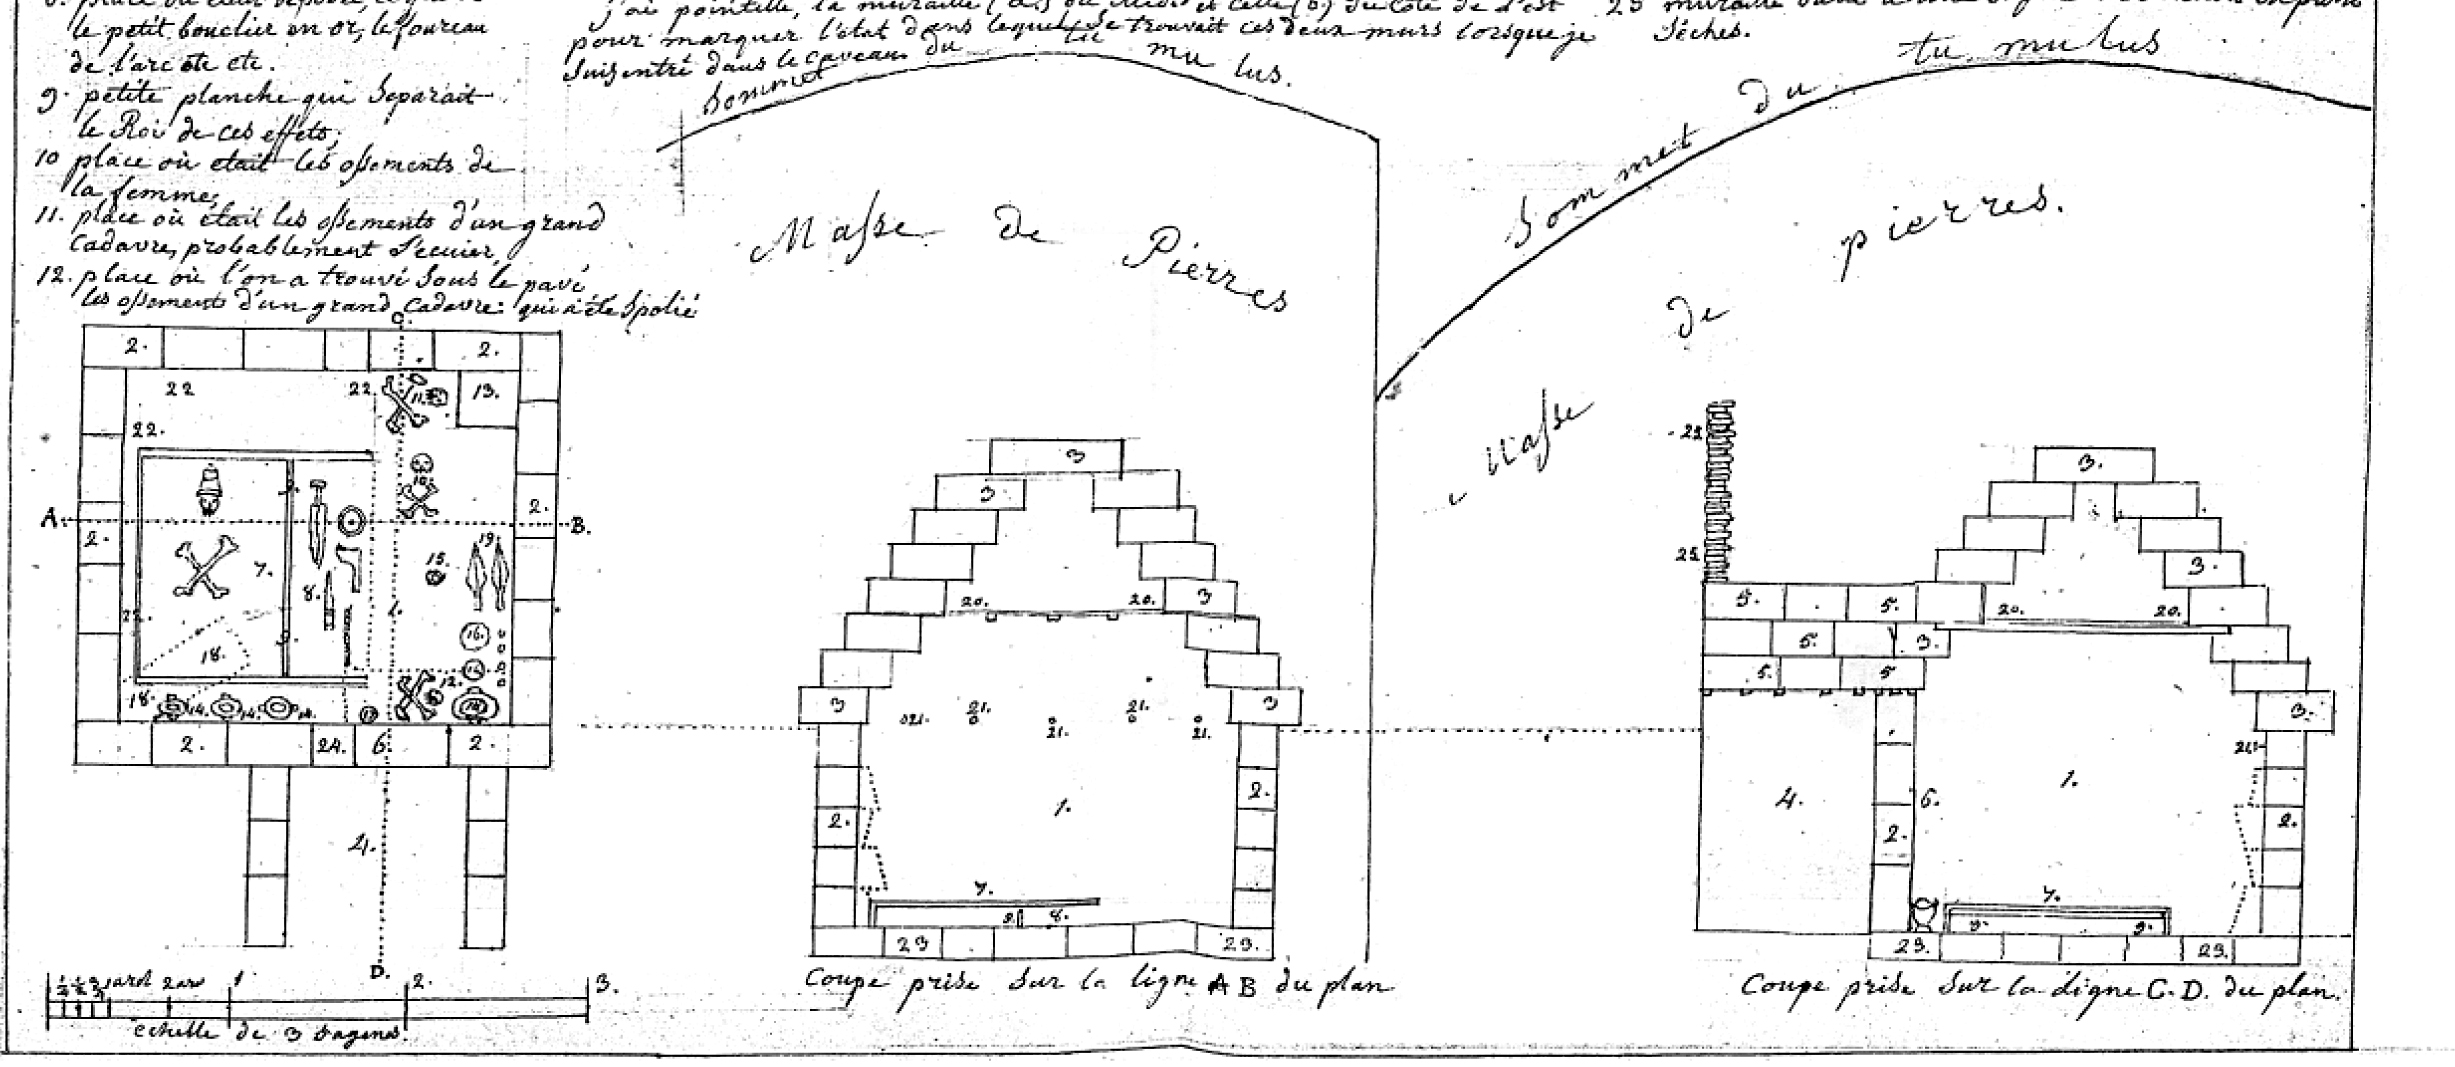 le petit bouclier en or, le foureau
de l'arc etc etc.
9. petite planche qui Separait
le Roi de ces effets;
10 place où etait les ossements de
la femme;
11. place où était les ossements d'un grand
Cadavre, probablement l'ecuier,
12. place où l'on a trouvé sous le pavé
les ossements d'un grand Cadavre: qui a été Spolié
j'ai pointillé, la muraille
pour marquer l'état dans lequel se trouvait ces deux murs lorsque je
Suis entré dans le caveau
23 muraille
Séches.
Sommet du tu mu lus.
Masse de Pierres
Sommet du tu mu lus
Masse de pierres.
C.
2. 2.
22 22 11. 13.
22.
10.
A. B.
2. 2.
9. 19.
15.
7. 8. 1.
16.
18. 9.
18. 14. 14. 14. 12.
2. 24. 6. 2.
4.
D.
1. 2. 3.
echelle de 3 Sagenes.
3
3
20. 20. 3
3 3
21. 21. 21. 21. 21.
2. 2.
1.
7.
9. 8.
23 23.
Coupe prise Sur la ligne A B du plan
25
25
3.
3.
5. 5. 20. 20.
5. 3.
5. 5
3.
21.
4. 6. 1.
2. 2.
7.
9. 9.
23. 23.
Coupe prise Sur la ligne C. D. du plan.